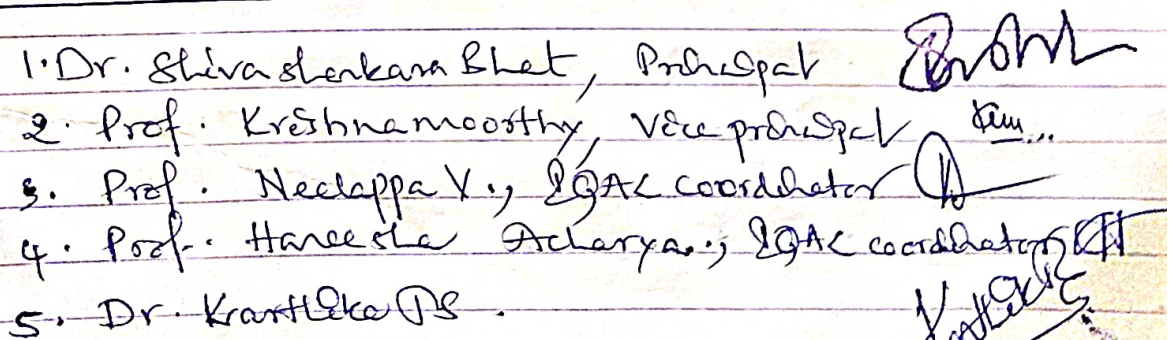 1. Dr. Shivashankara Bhat, Principal
2. Prof. Krishnamoorthy, Vice principal
3. Prof. Neelappa V., IQAC coordinator
4. Prof. Hareesha Acharya., IQAC coordinator
5. Dr. Karthika PS.